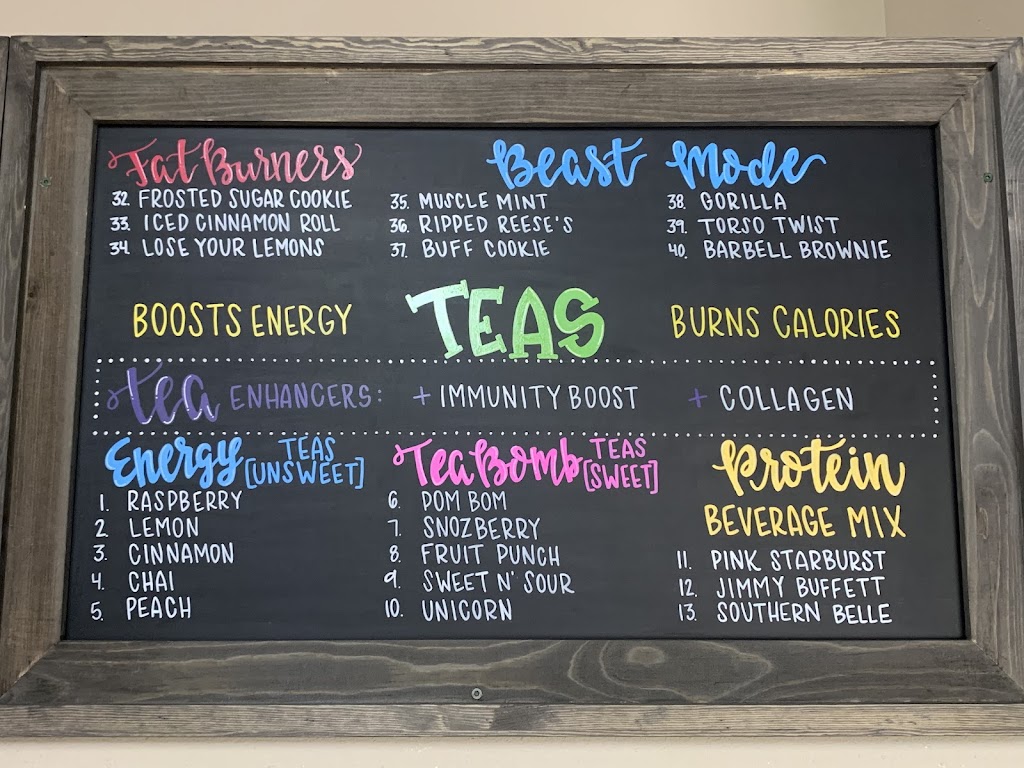 Fat Burners
32. FROSTED SUGAR COOKIE
33. ICED CINNAMON ROLL
34. LOSE YOUR LEMONS
Beast Mode
35. MUSCLE MINT
36. RIPPED REESE'S
37. BUFF COOKIE
38. GORILLA
39. TORSO TWIST
40. BARBELL BROWNIE
BOOSTS ENERGY
TEAS
BURNS CALORIES
tea ENHANCERS: + IMMUNITY BOOST + COLLAGEN
Energy TEAS [UNSWEET]
1. RASPBERRY
2. LEMON
3. CINNAMON
4. CHAI
5. PEACH
Tea Bomb TEAS [SWEET]
6. POM BOM
7. SNOZBERRY
8. FRUIT PUNCH
9. SWEET N' SOUR
10. UNICORN
Protein
BEVERAGE MIX
11. PINK STARBURST
12. JIMMY BUFFETT
13. SOUTHERN BELLE